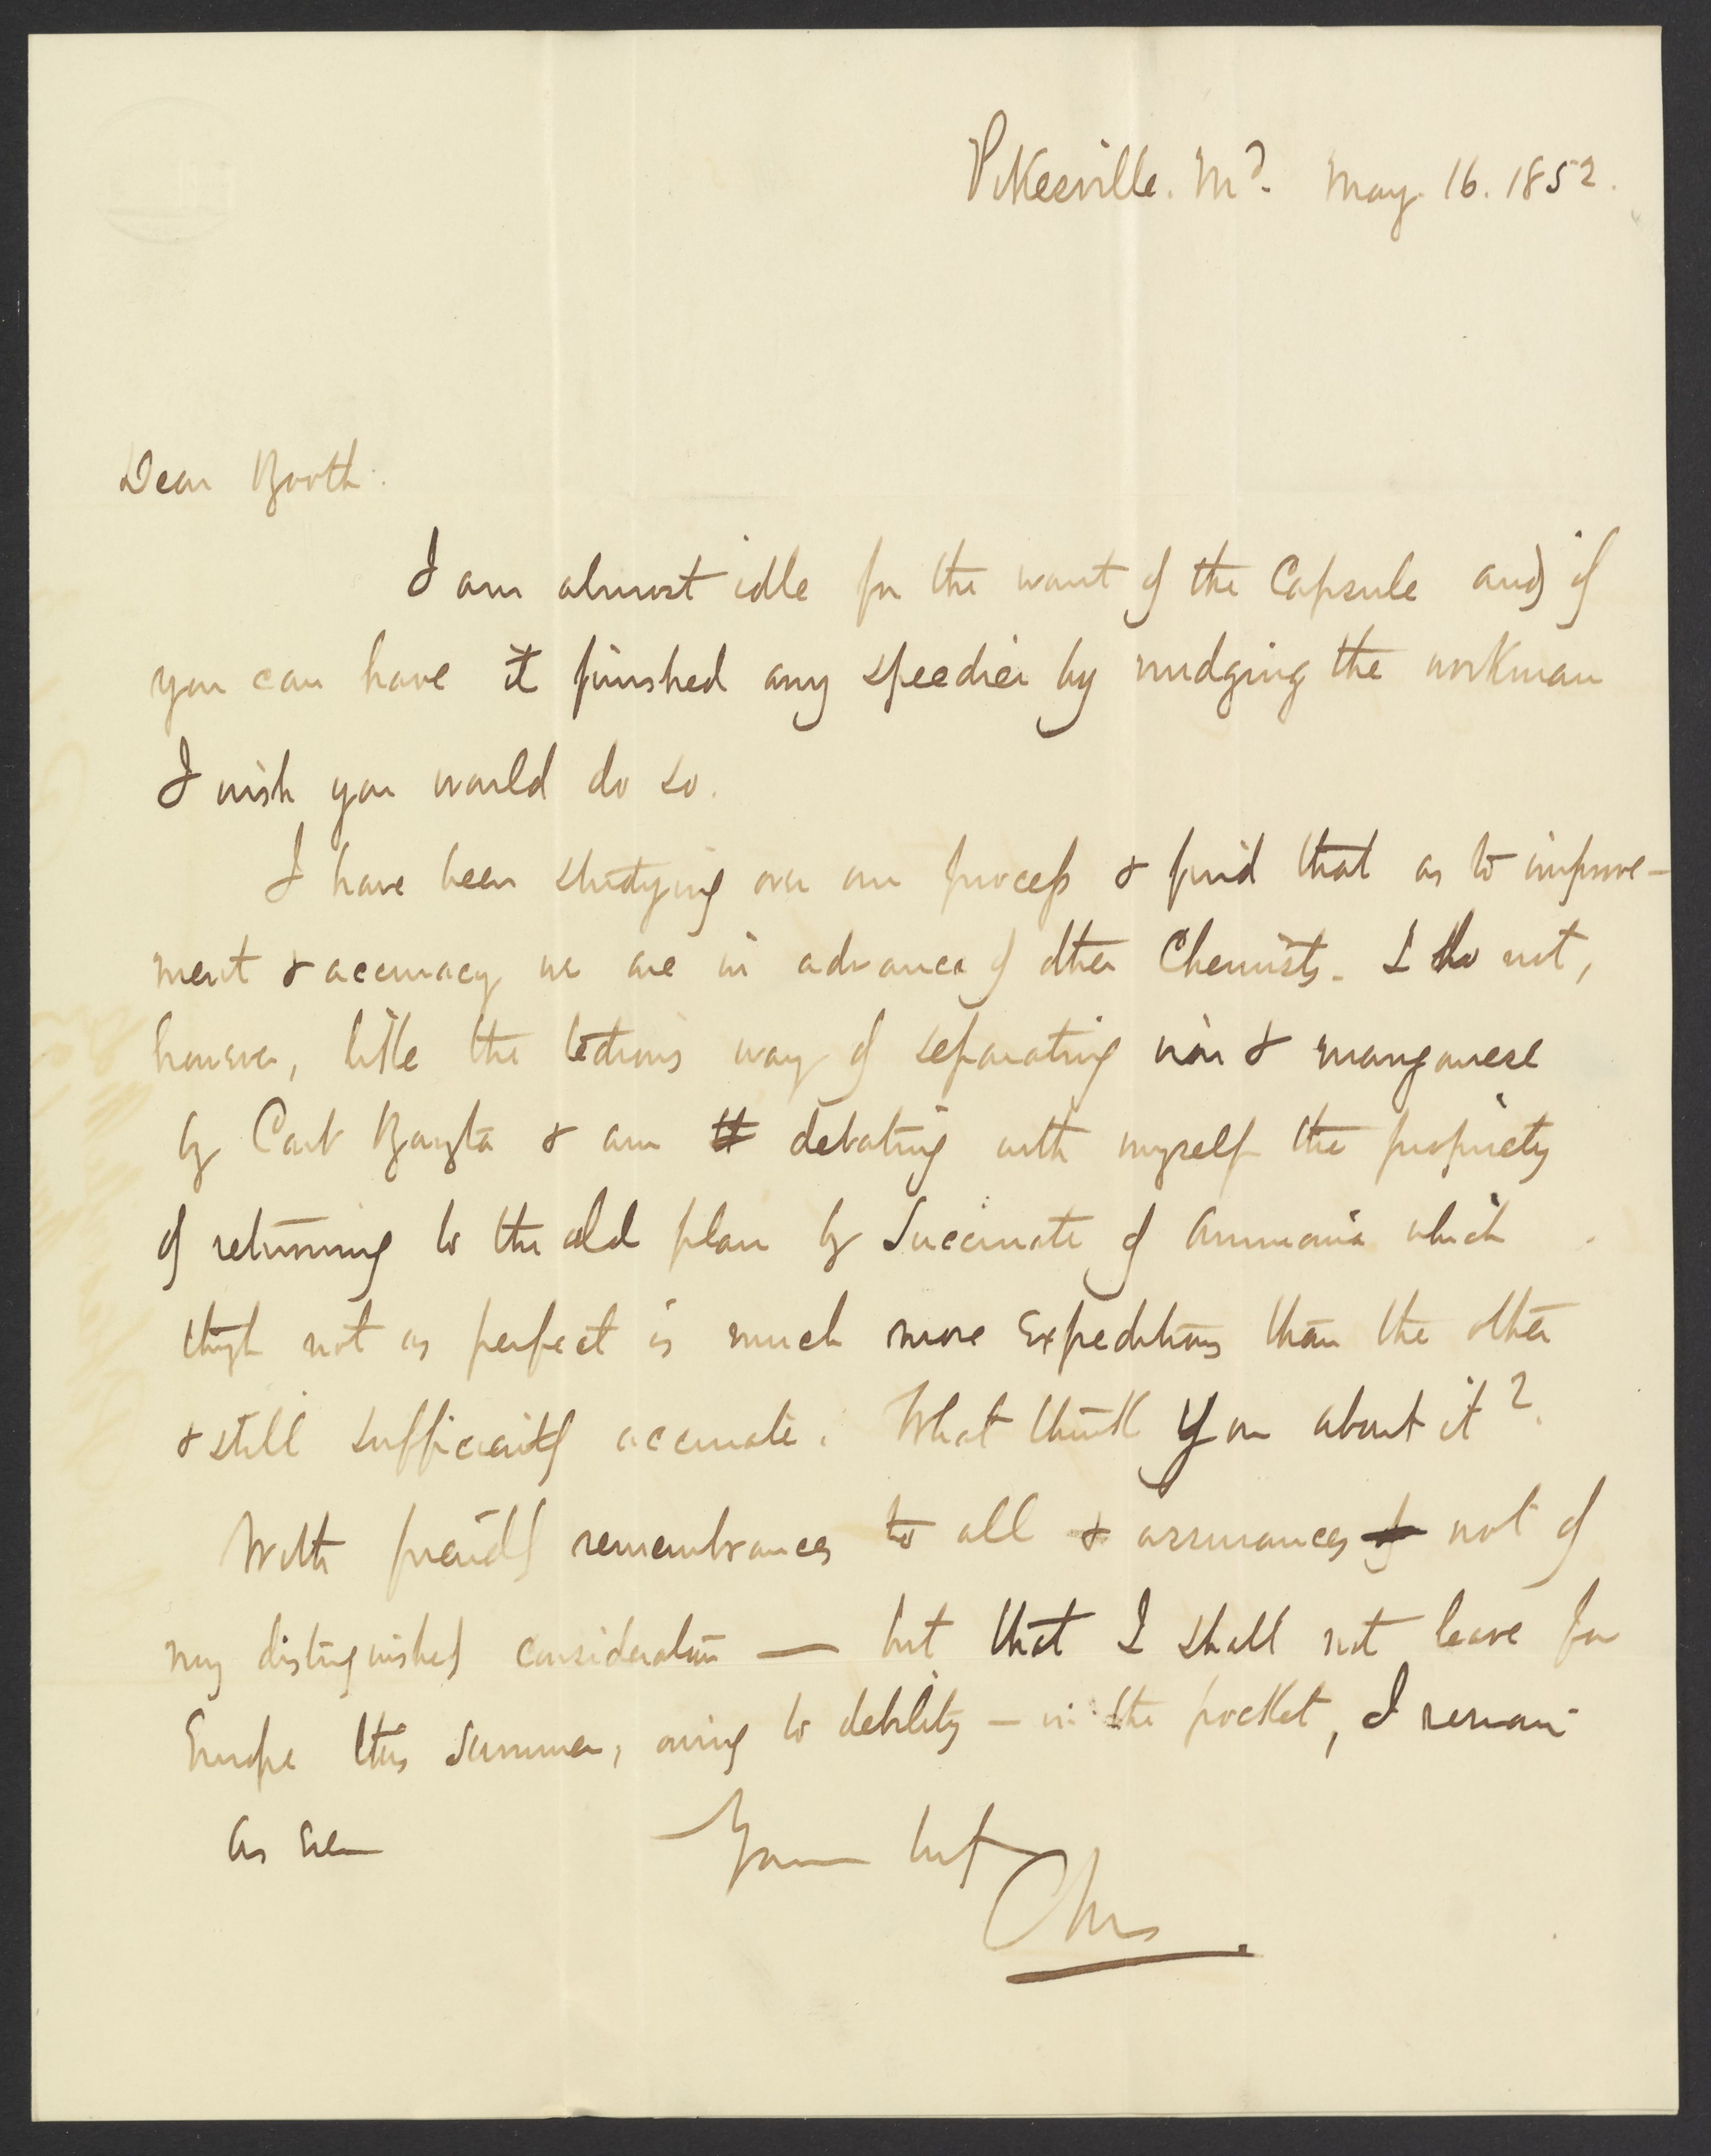 Pikesville. Md. May. 16. 1852.
Dear Booth.
I am almost idle for the want of the Capsule and if
you can have it finished any speedier by nudging the workman
I wish you would do so.
I have been studying over our process & find that as to improve-
ment & accuracy we are in advance of other Chemists. I do not,
however, like the tedious way of separating iron & manganese
by Carb Baryta & am debating with myself the propriety
of returning to the old plan by Succinate of Ammonia which
though not as perfect is much more expeditious than the other
& still sufficiently accurate. What think you about it?
With friendly remembrances to all & assurances not of
my distinguished consideration — but that I shall not leave for
Europe this Summer, owing to debility – in the pocket, I remain
as ever Yours